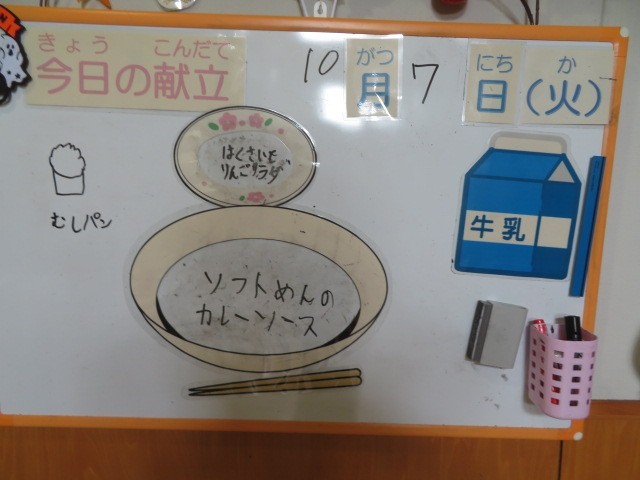 きょう こんだて
今日の献立
10 がつ 7 にち か
月 日(火)
はくさいと
りんごサラダ
むしパン
牛乳
ソフトめんの
カレーソース